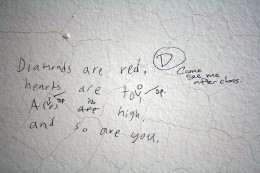 Diamonds are red,
hearts are to
sp.
sp.
Aces are high,
and so are you.
D
Come
see me
after class.